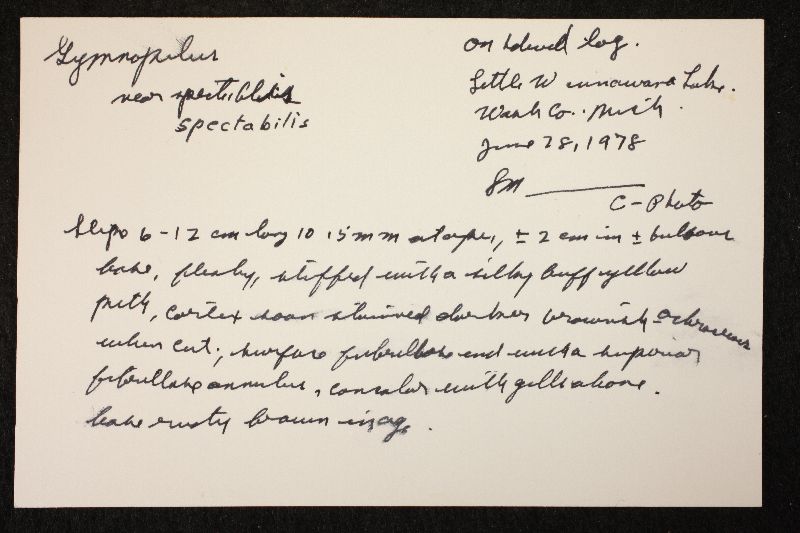 Gymnopilus
near spectabilis
spectabilis
on log.
Little Winnawana Lake.
Wash Co. Mich.
June 28, 1978
SM
C-Photo
Stipe 6-12 cm long 10-15 mm at apex, ± 2 cm in ± bulbous
base, fleshy, stuffed with a silky buff yellow
pith, cortex soon stained darker brownish ochraceous
when cut; surface fibrillose and with a superior
fibrillose annulus, concolor with gills above.
base rusty brown in age.